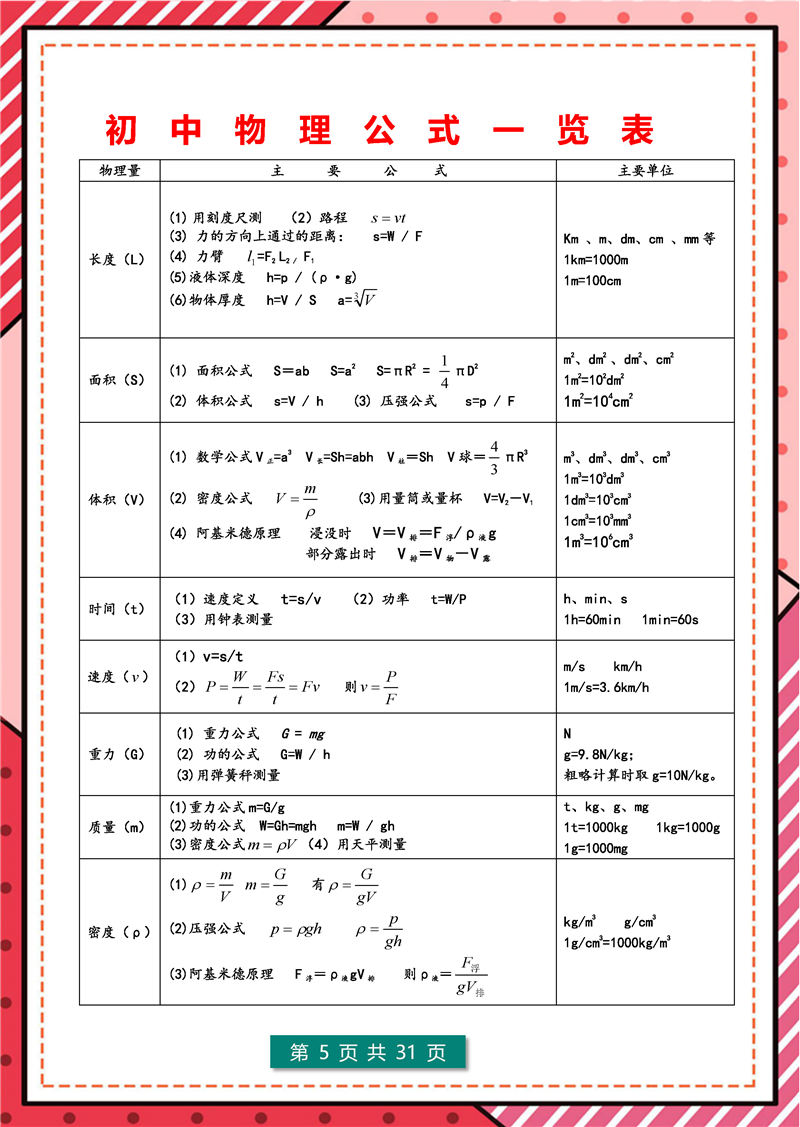 初中物理公式一览表
物理量 主要公式 主要单位
长度（L）
(1) 用刻度尺测 （2）路程 s = vt
(3) 力的方向上通过的距离： s=W / F
(4) 力臂 l₁=F₂L₂ / F₁
(5)液体深度 h=p /（ρ·g）
(6)物体厚度 h=V / S a=∛V
Km 、m、dm、cm 、mm 等
1km=1000m
1m=100cm
面积（S）
(1) 面积公式 S＝ab S=a² S=πR² = 1/4 πD²
(2) 体积公式 s=V / h (3) 压强公式 s=p / F
m²、dm² 、dm²、cm²
1m²=10²dm²
1m²=10⁴cm²
体积（V）
(1) 数学公式 V正=a³ V长=Sh=abh V柱＝Sh V球＝4/3 πR³
(2) 密度公式 V = m/ρ (3)用量筒或量杯 V=V₂－V₁
(4) 阿基米德原理 浸没时 V＝V排＝F浮/ρ液g
部分露出时 V排＝V物－V露
m³、dm³、dm³、cm³
1m³=10³dm³
1dm³=10³cm³
1cm³=10³mm³
1m³=10⁶cm³
时间（t）
（1）速度定义 t=s/v （2）功率 t=W/P
（3）用钟表测量
h、min、s
1h=60min 1min=60s
速度（v）
（1）v=s/t
（2）P = W/t = Fs/t = Fv 则 v = P/F
m/s km/h
1m/s=3.6km/h
重力（G）
(1) 重力公式 G = mg
(2) 功的公式 G=W / h
(3)用弹簧秤测量
N
g=9.8N/kg；
粗略计算时取 g=10N/kg。
质量（m）
(1)重力公式 m=G/g
(2)功的公式 W=Gh=mgh m=W / gh
(3)密度公式 m = ρV （4）用天平测量
t、kg、g、mg
1t=1000kg 1kg=1000g
1g=1000mg
密度（ρ）
(1) ρ = m/V m = G/g 有 ρ = G/gV
(2)压强公式 p = ρgh ρ = p/gh
(3)阿基米德原理 F浮＝ρ液gV排 则 ρ液＝F浮/gV排
kg/m³ g/cm³
1g/cm³=1000kg/m³
第 5 页 共 31 页